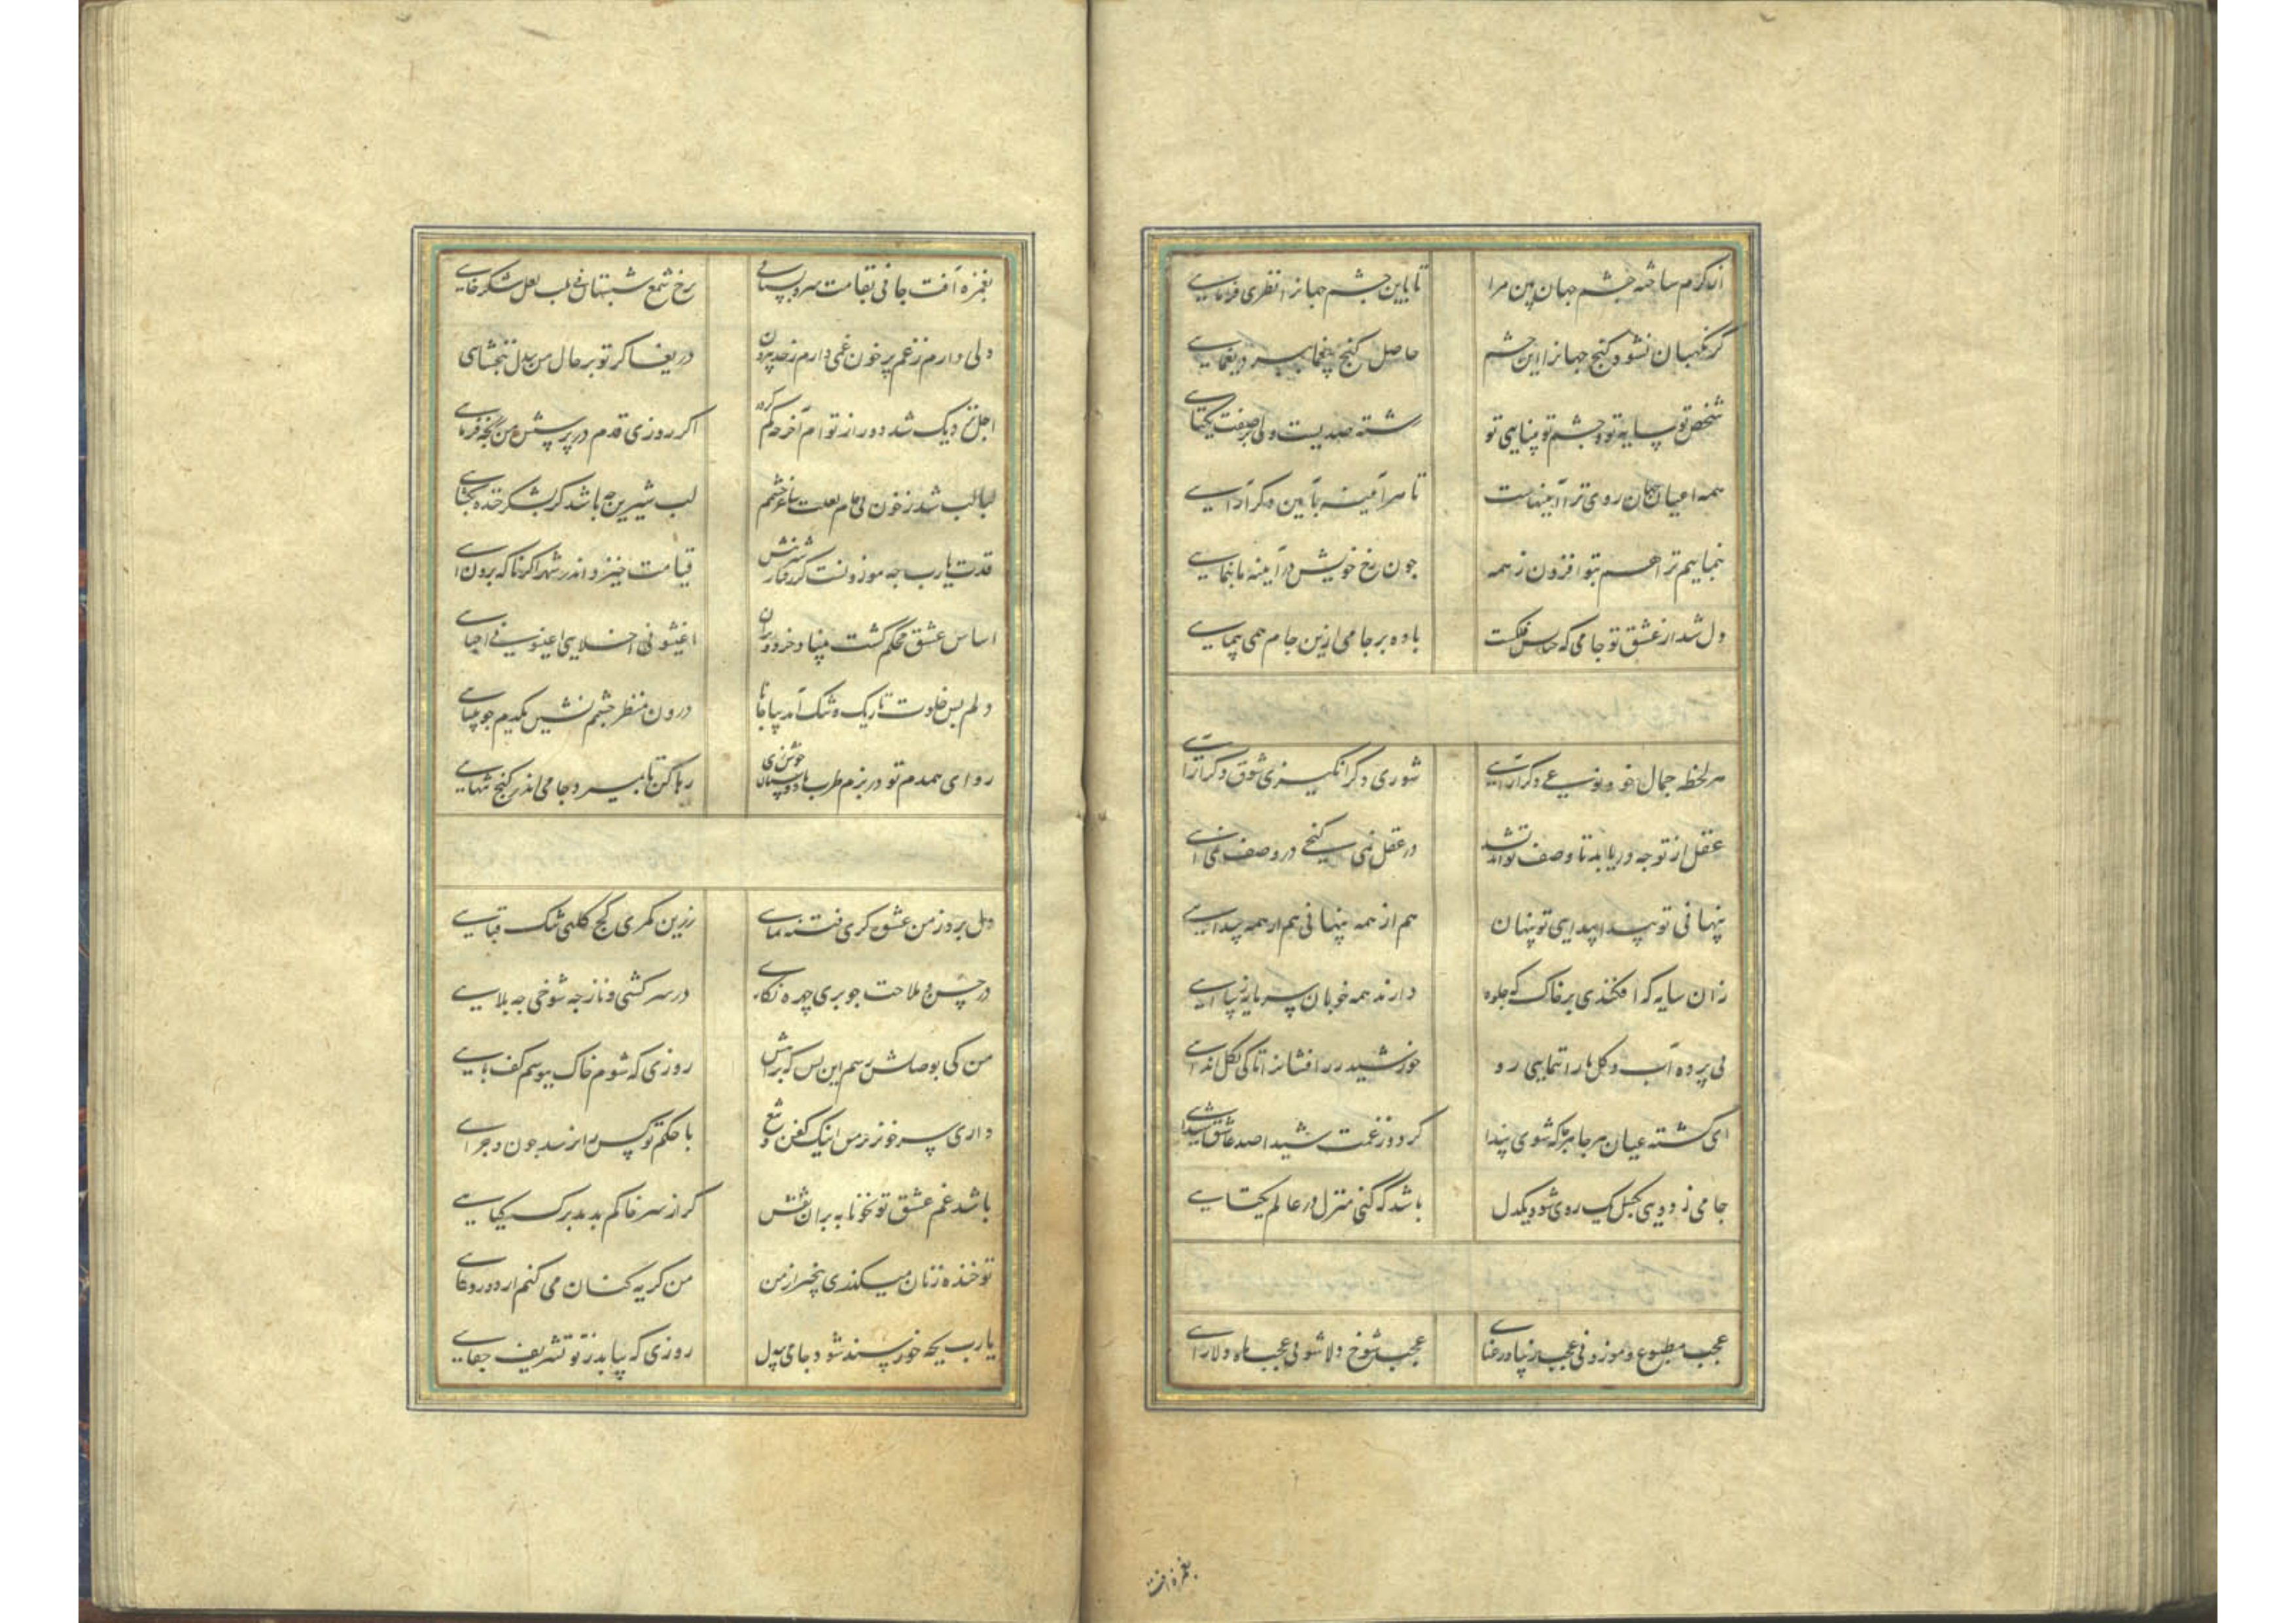 از کرم ساخته چشم جهان بین مرا تا باین چشم جهانرا نظری فرمایی
کر نکهبان نشود کنج جهانرا این چشم حاصل کنج یغما ببرد یغمایی
شخص تو سایه تو و چشم تو بینایی تو کشته صدیست ولی بر صفت یکتایی
همه اعیان جهان روی ترا آیینهاست تا هر آیینه بآیین دکر آرایی
بنماییم ترا هم بتو افزون ز همه جون رخ خویش در آیینه ما بنمایی
دل شد از عشق تو جامی که فلکست باده بر جامی ازین جام همی پیمایی
هر لحظه جمال خود نوعی دکر آرایی شوری دکر انکیزی شوق دکر افزایی
عقل از تو جه دریابد تا وصف تو اندیشد در عقل نمی کنجی در وصف نمی آیی
پنهانی تو پیدا پیدایی تو پنهان هم از همه پنهانی هم از همه پیدایی
زان سایه که افکندی بر خاک که جلوه دارند همه خوبان سرمایه زیبایی
بی پرده آب و کل ما را ننمایی رو خورشید درافشانرا تا کی بکل اندایی
ای کشته عیان هر جا هر جا که شوی پیدا کردد ز غمت شیدا صد عاشق شیدایی
جامی ز دویی بکسل یک روی شو و یکدل باشد که کنی منزل در عالم یکتایی
عجب مطبوع و موزونی عجب زیبا و رعنایی عجب شوخ دلاشوبی عجب ماه دلارایی
بغمزه آفت
بغمزه آفت جانی بقامت سرو بستانی برخ شمع شبستانی بلب لعل شکرخایی
دلی دارم ز غم پر خون غمی دارم ز حد بیرون دریغا کر تو بر حال من بیدل نبخشایی
اجل نزدیک شد دور از توام آخر جه کم کردد اکر روزی قدم در پرسش من رنجه فرمایی
لبالب شد ز خون بی جام لعلت ساغر چشمم لب شیرین جه باشد کر بشکر خنده بکشایی
قدت یارب جه موزونست کر رفتار شیرینش قیامت خیزد اندر شهر اکر ناکه برون آیی
اساس عشق محکم کشت و بنیاد خرد ویران اغیثونی اخلایی اعینونی احبایی
دلم بس خلوت تاریک و تنک آمد بیا جانا درون منظر چشمم نشین یکدم جو بینایی
رو ای همدم تو در بزم طرب با دوستان خوش زی رها کن تا بمیرد جامی اندر کنج تنهایی
دل برد ز من عشوه کری فتنه نمایی زرین کمری کج کلهی تنک قبایی
در حسن و ملاحت جو پری چهره نکاری در سرکشی و ناز جه شوخی جه بلایی
من کی بوصالش رسم این بس که براهش روزی که شوم خاک ببوسم کف پایی
داری سر خونریز من اینک کفن و تیغ با حکم تو کس را نرسد چون و چرایی
باشد غم عشق تو بخونابه بران نقش کر از سر خاکم بدمد برک کیایی
تو خنده زنان میکذری بیخبر از من من کریه کنان می کنم از دور دعایی
یارب بجه خورسند شود جامی بیدل روزی که نیابد ز تو تشریف جفایی